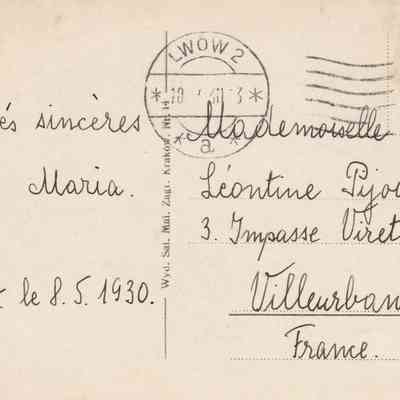 LWOW 2
a
és sincères
Maria.
le 8.5.1930.
Wyd. Sal. Mal. Zagr. Kraków, Nr. 14
Mademoiselle
Léontine Pijo
3. Impasse Viret
Villeurban
France.